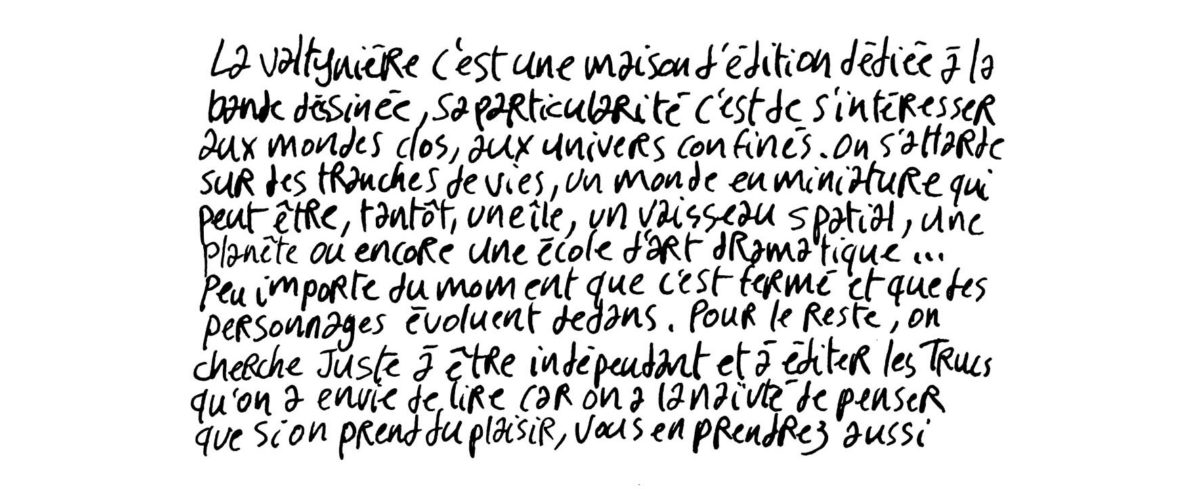 La valtynière c'est une maison d'édition dédiée à la
bande déssinée, sa particularité c'est de s'intéresser
aux mondes clos, aux univers confinés. On s'attarde
sur des tranches de vies, un monde en miniature qui
peut être, tantôt, une île, un vaisseau spatial, une
planète ou encore une école d'art dramatique...
Peu importe du moment que c'est fermé et que des
personnages évoluent dedans. Pour le reste, on
cherche juste à être indépendant et à éditer les trucs
qu'on a envie de lire car on a la naïvté de penser
que si on prend du plaisir, vous en prendrez aussi